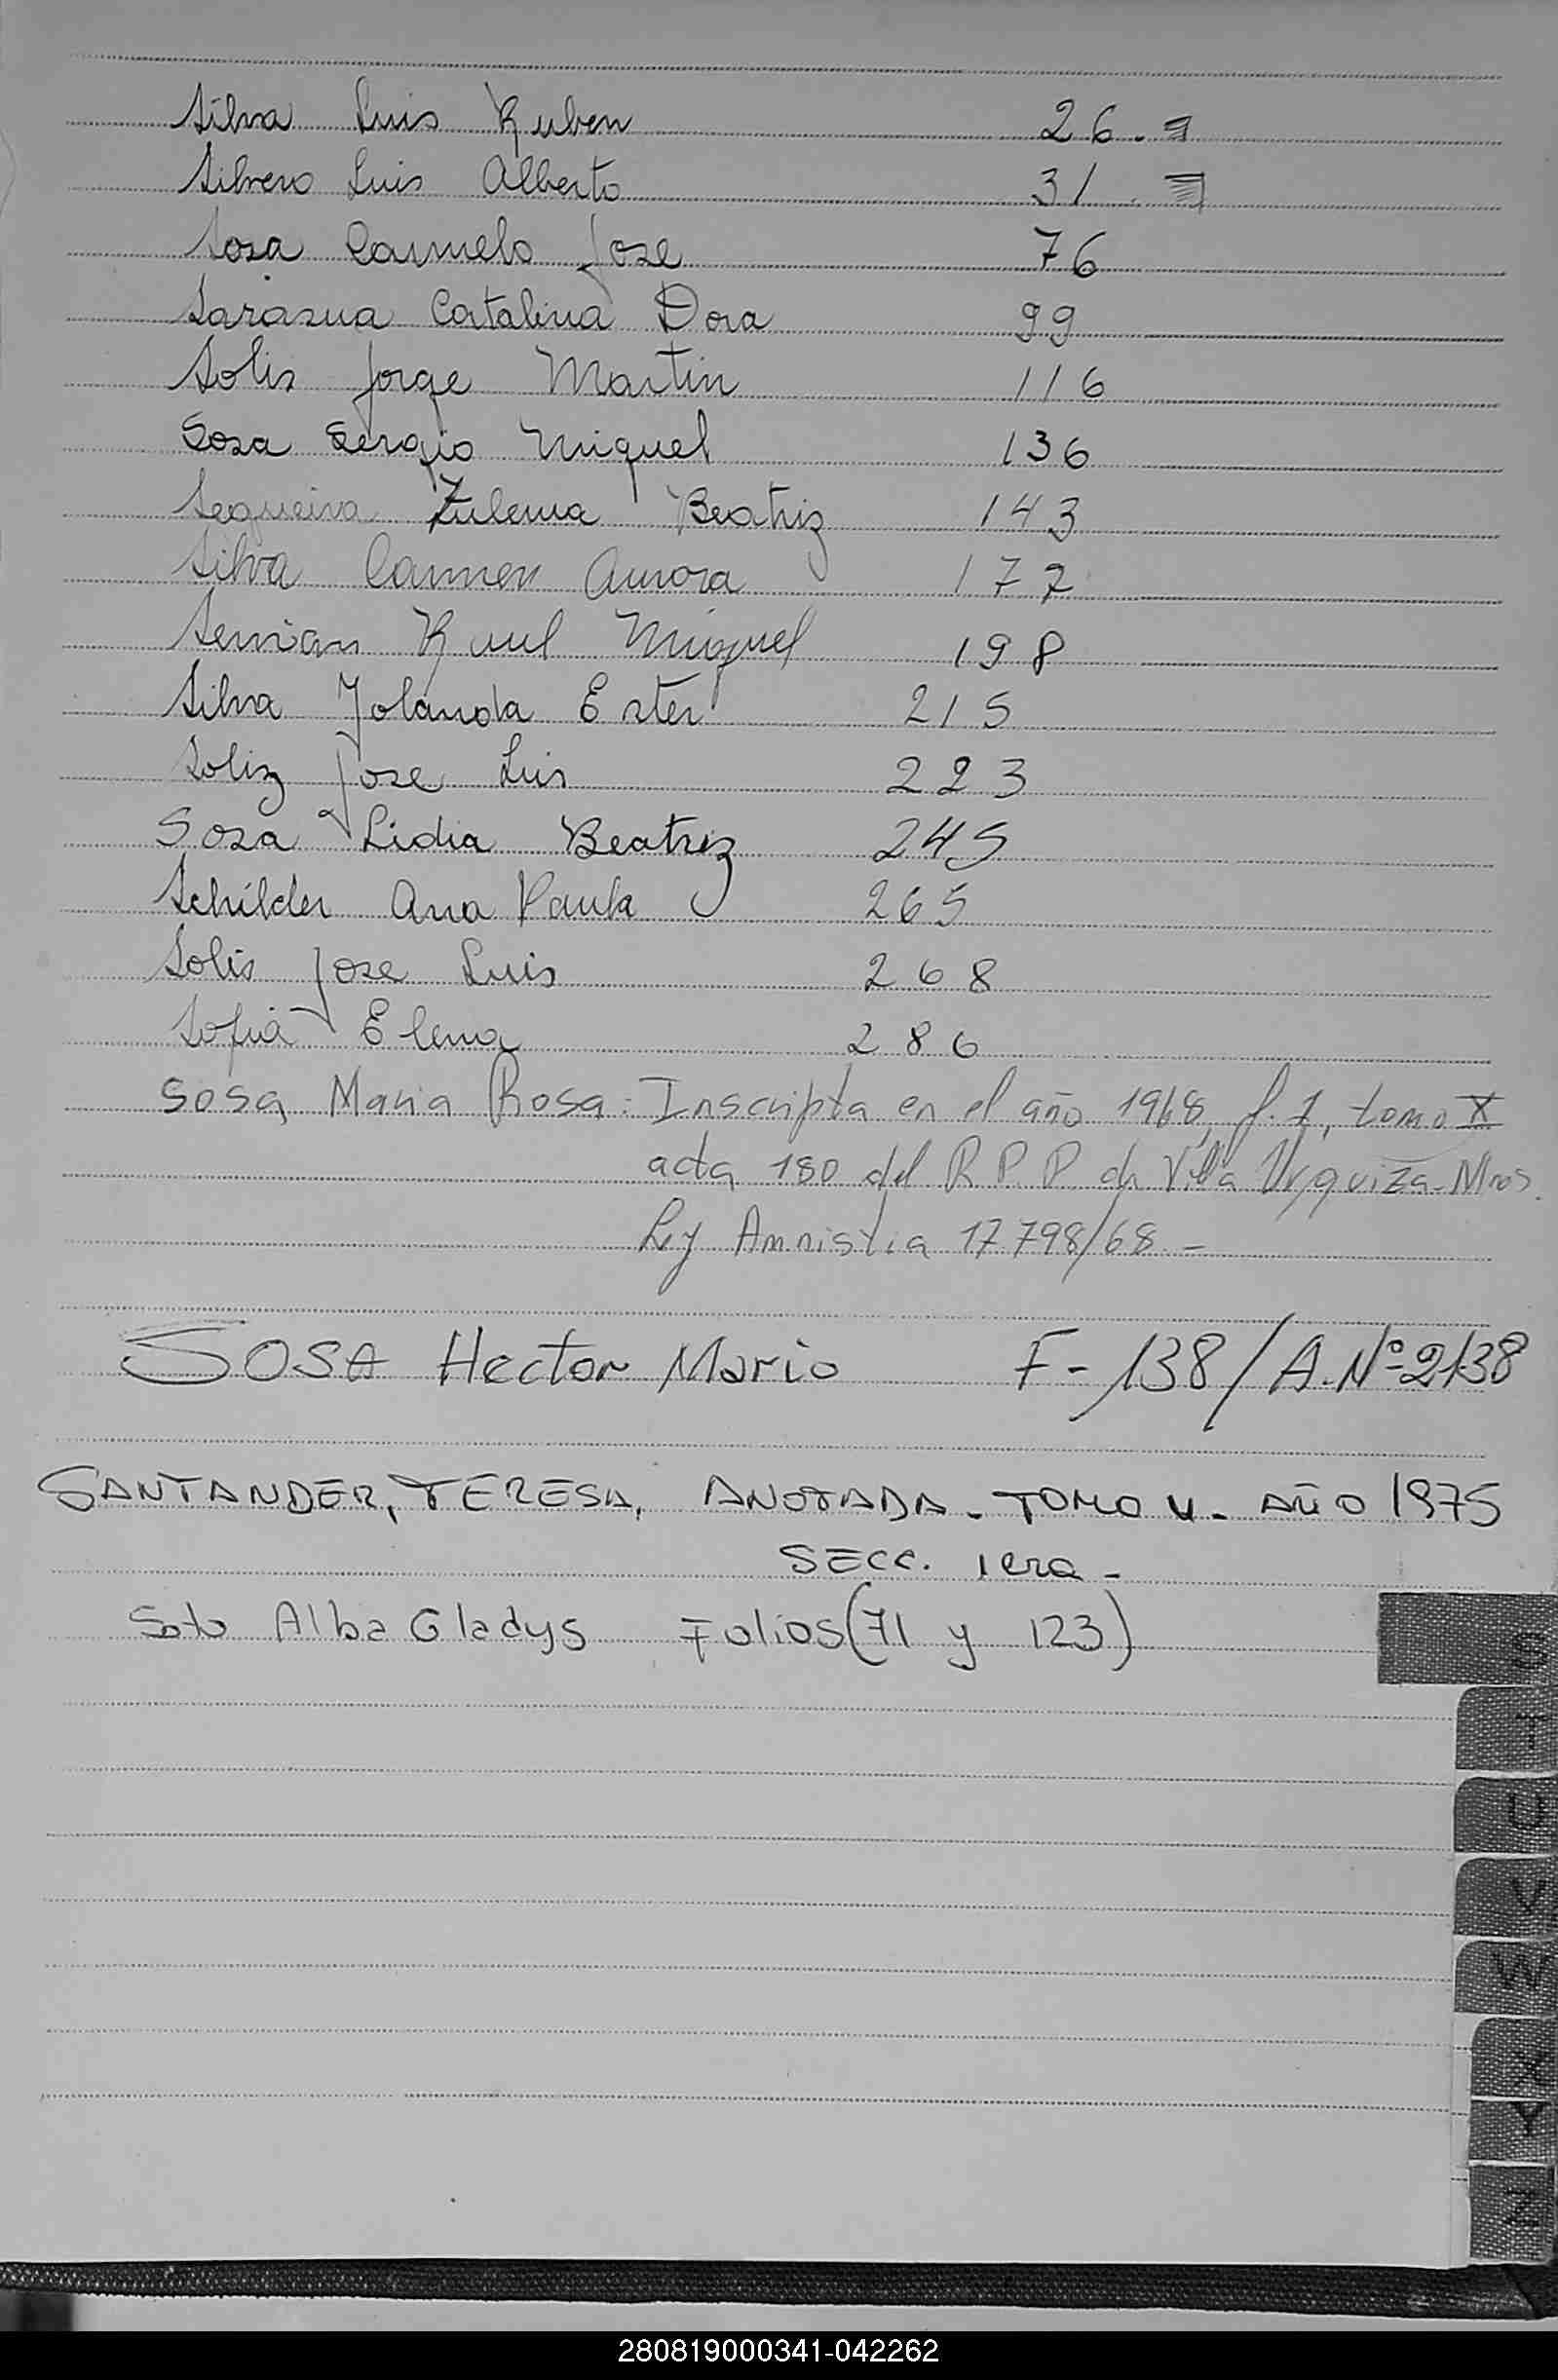 Silva Luis Ruben 26.
Silvero Luis Alberto 31.
Sosa Carmelo Jose 76
Sarasua Catalina Dora 99
Solis Jorge Martin 116
Sosa Sergio Miguel 136
Sequeira Zulema Beatriz 143
Silva Carmen Aurora 177
Raul Miguel 198
Silva Yolanda Ester 215
Soliz Jose Luis 223
Sosa Lidia Beatriz 245
Schilder Ana Paula 265
Solis Jose Luis 268
Sofia Elena 286
Sosa, Maria Rosa: Inscripta en el año 1968, f. 1, tomo X
acta 180 del R.P.P. de Villa Urquiza-Mnos.
Ley Amnistia 17798/68.-
SOSA Hector Mario F-138/A.Nº-2138
SANTANDER, TERESA, ANOTADA. TOMO V. AÑO 1975
SECC. 1era-
Soto Alba Gladys Folios (71 y 123)
S
T
U
V
W
X
Y
Z
280819000341-042262